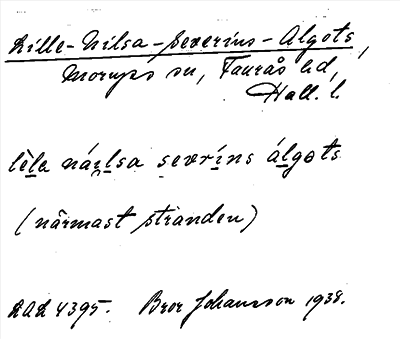 Lille-Nilsa-Severins-Algots,
Morups sn, Faurås hd,
Hall. l.
lèle náɪlsa sevríns álgots
(närmast stranden)
LAL 4395. Bror Johansson 1938.